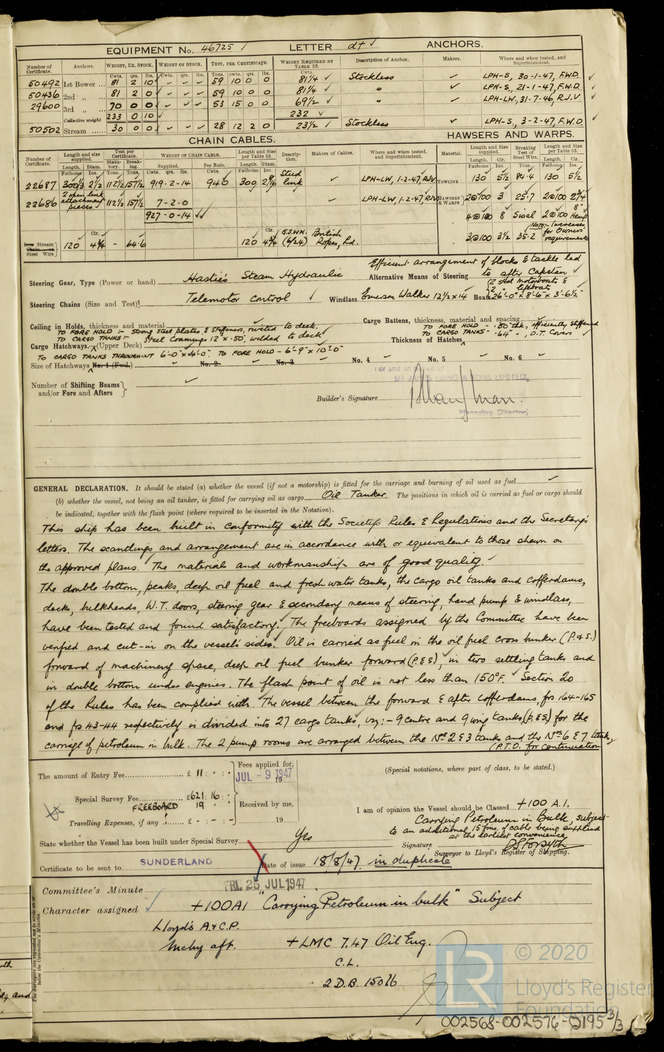 EQUIPMENT No. 46725 LETTER d† ANCHORS.
Number of Certificate. Anchors. WEIGHT, EX. STOCK. WEIGHT OF STOCK. TEST, PER CERTIFICATE. WEIGHT REQUIRED BY TABLE 53. Description of Anchor. Makers. Where and when tested, and Superintendent.
Cwts. qrs. lbs. Cwts. qrs. lbs. Tons. cwts. qrs. lbs. Cwts.
50492 1st Bower 81 2 10 59 10 0 0 81¼ Stockless LPH-S, 30-1-47, F.W.D.
50436 2nd „ 81 2 0 59 10 0 0 81¼ " LPH-S, 21-1-47, F.W.D.
29600 3rd „ 70 0 0 53 15 0 0 69½ " LPH-LW, 31-7-46, R.J.V.
Collective weight 233 0 10 232
50502 Stream 30 0 0 28 12 2 0 23½ Stockless LPH-S, 3-2-47, F.W.D.
CHAIN CABLES. HAWSERS AND WARPS.
Number of Certificate. Length and size supplied. Test per Certificate. WEIGHT OF CHAIN CABLE. Length and Size per Table 53. Description. Makers of Cables. Where and when tested, and Superintendent. Material. Length and Size supplied. Breaking Test of Steel Wire. Length and Size per Table 53.
Fathoms Diam. Statutory. Breaking. Supplied. Per Rule. Fathoms Diam. Fathoms Cir. Tons. Fathoms Cir.
22687 300 2 112½ 157½ 919-2-14 940 300 Stud link LPH-LW, 1-2-47, TOWLINE 130 5½ 84.4 130 5½
22686 2 open link attachment pieces 112½ 157½ 7-2-0 LPH-LW, 1-2-47, HAWSERS & WARPS 2@100 3 25.7 2@100 2¾
927-0-14 4@100 8 Sisal 2@100 8" Hemp
Stream Steel Wire 120 4⅜ - 64.6 120 4⅜ (6/24) British Ropes, Ld. 3@100 3½ 35.2 (Note:- Increase for Owners requirements
Steering Gear, Type (Power or hand) Hastie's Steam Hydraulic Alternative Means of Steering Efficient arrangement of blocks & tackle led to after Capstan
Steering Chains (Size and Test) Telemotor control Windlass Emerson Walker 12½ x 14 Boats 2 Std motorboats & 2 lifeboats 26'-0" x 8'-6" x 3'-6½"
Ceiling in Holds, thickness and material Cargo Battens, thickness, material and spacing
TO FORE HOLD :- Strong steel plates & stiffeners, riveted to deck. TO FORE HOLD - .50 thk, efficiently stiffened
TO CARGO TANKS :- Steel Coamings 12 x .50", welded to deck TO CARGO TANKS - .64", O.T. Covers
Cargo Hatchways (Upper Deck) Thickness of Hatches
TO CARGO TANKS THROUGHOUT 6'-0" x 4'-0" TO FORE HOLD - 6'-9" x 10'-0"
Size of Hatchways No. 1 (Fwd.) No. 2 No. 3 No. 4 No. 5 No. 6
Number of Shifting Beams and/or Fore and Afters
Builder's Signature
Managing Director
GENERAL DECLARATION. It should be stated (a) whether the vessel (if not a motorship) is fitted for the carriage and burning of oil used as fuel
(b) whether the vessel, not being an oil tanker, is fitted for carrying oil as cargo Oil Tanker. The positions in which oil is carried as fuel or cargo should
be indicated, together with the flash point (where required to be inserted in the Notation).
This ship has been built in conformity with the Societies Rules & Regulations and the Secretary's
letters. The scantlings and arrangement are in accordance with or equivalent to those shewn on
the approved plans. The material and workmanship are of good quality.
The double bottom, peaks, deep oil fuel and fresh water tanks, the cargo oil tanks and cofferdams,
decks, bulkheads, W.T. doors, steering gear & secondary means of steering, hand pump & windlass,
have been tested and found satisfactory. The freeboards assigned by the Committee have been
verified and cut-in on the vessel's sides. Oil is carried as fuel in the oil fuel cross bunker (P.&S.)
forward of machinery space, deep oil fuel bunker forward (P.&S), in two settling tanks and
in double bottom under engines. The flash point of oil is not less than 150°F. Section 20
of the Rules has been complied with. The vessel between the forward & after cofferdams, frs 164-165
and frs 43-44 respectively is divided into 27 cargo tanks, viz:- 9 centre and 9 wing tanks (P.&S.) for the
carriage of petroleum in bulk. The 2 pump rooms are arranged between the Nos 2 & 3 tanks and the Nos 6 & 7 tanks,
(P.T.O. for continuation)
The amount of Entry Fee £ 11 : : Fees applied for, JUL - 9 1947 (Special notations, where part of class, to be stated.)
Special Survey Fee £ 621 16 :
FREEBOARD 19 Received by me, I am of opinion the Vessel should be Classed +100 A.1.
Travelling Expenses, if any £ : : 19 Carrying Petroleum in Bulk, subject
to an additional 15 fms. of cable being supplied
at the earliest convenience.
State whether the Vessel has been built under Special Survey Yes Signature
Surveyor to Lloyd's Register of Shipping.
Certificate to be sent to SUNDERLAND Date of issue 18/8/47 in duplicate
Committee's Minute FRI. 25 JUL 1947
Character assigned +100A1 "Carrying Petroleum in bulk" Subject
Lloyd's A & C.P.
Mchy aft. +LMC 7.47 Oil Eng.
C.L.
2 D.B. 150 lb
© 2020
Lloyd's Register
Foundation
002568-002576-0195 3/3